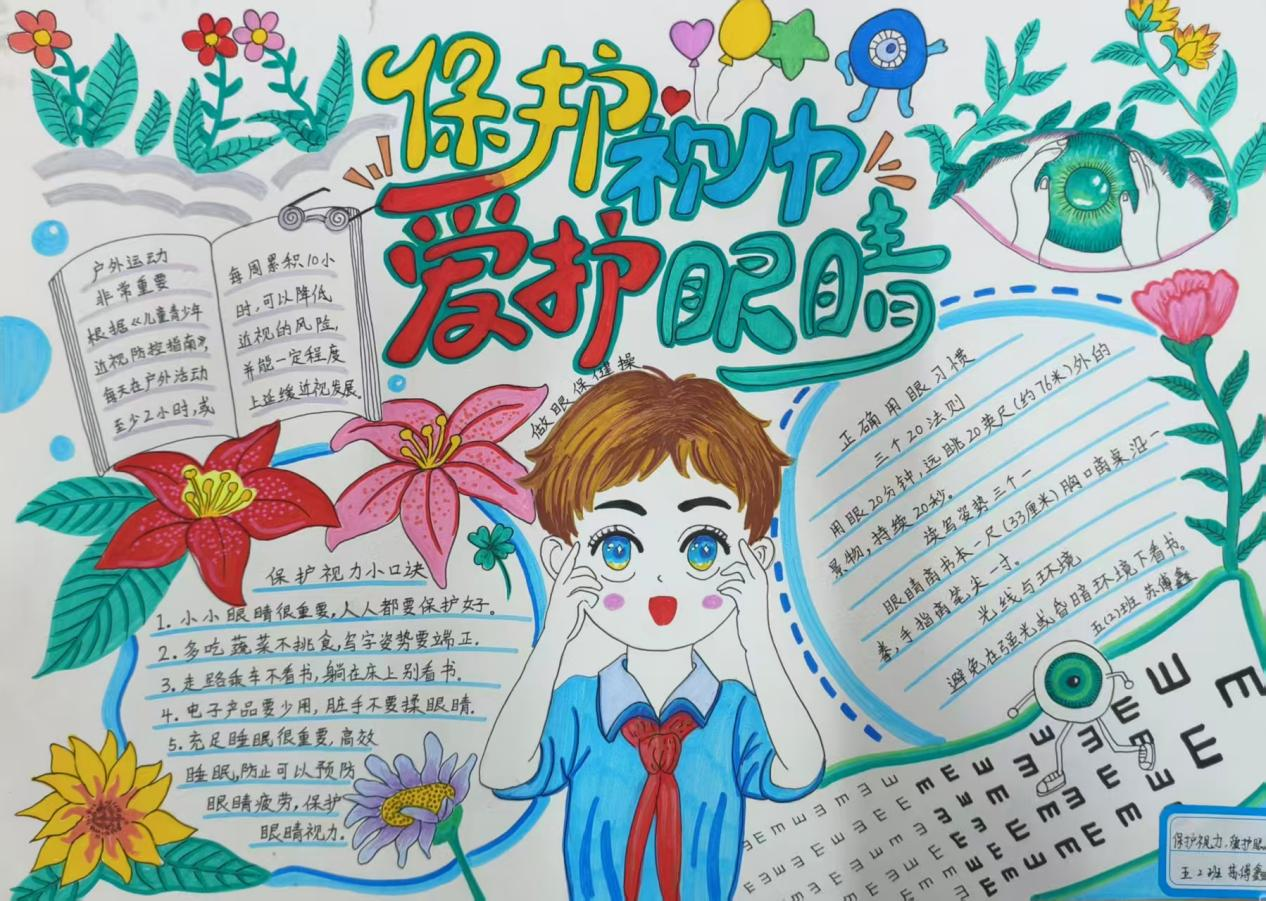 保护视力
爱护眼睛
户外运动
非常重要
根据《儿童青少年
近视防控指南》,
每天在户外活动
至少2小时,或
每周累积10小
时,可以降低
近视的风险,
并能一定程度
上延缓近视发展。
做眼保健操
正确用眼习惯
三个20法则
用眼20分钟,远眺20英尺(约76米)外的
景物,持续20秒。
读写姿势三个一
眼睛离书本一尺(33厘米)胸口离桌沿一
拳,手指离笔尖一寸。
光线与环境
避免在强光或昏暗环境下看书。
五(2)班 苏傅鑫
保护视力小口诀
1.小小眼睛很重要,人人都要保护好。
2.多吃蔬菜不挑食,写字姿势要端正.
3.走路乘车不看书,躺在床上别看书.
4.电子产品要少用,脏手不要揉眼睛.
5.充足睡眠很重要,高效
睡眠,防止可以预防
眼睛疲劳,保护
眼睛视力.
保护视力,爱护眼
五2班 苏傅鑫